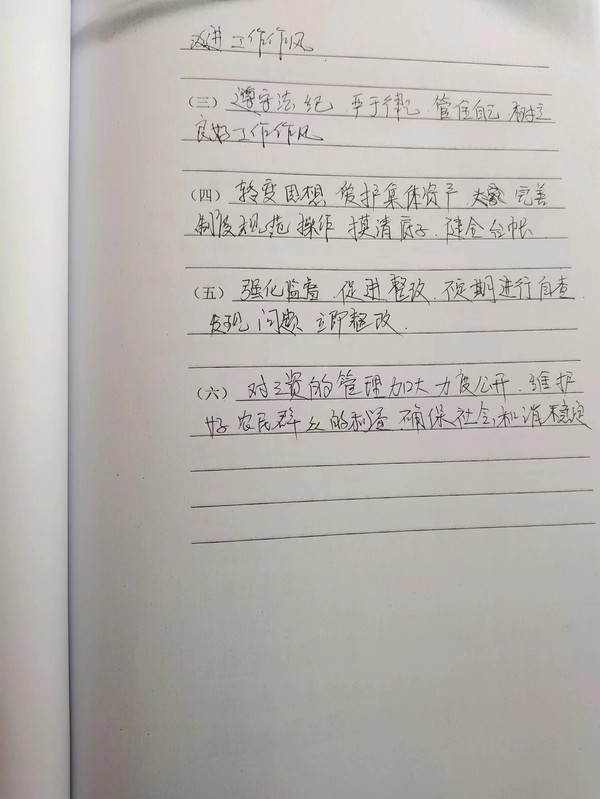 改进工作作风
(三) 遵守法纪 严于律己 管住自己 树立
良好工作作风
(四) 转变思想 爱护集体资产 完善
制度规范操作 摸清底子 健全台帐
(五) 强化监督 促进整改 不定期进行自查
发现问题 立即整改.
(六) 对三资的管理加大力度公开. 维护
好农民群众的利益 确保社会和谐稳定